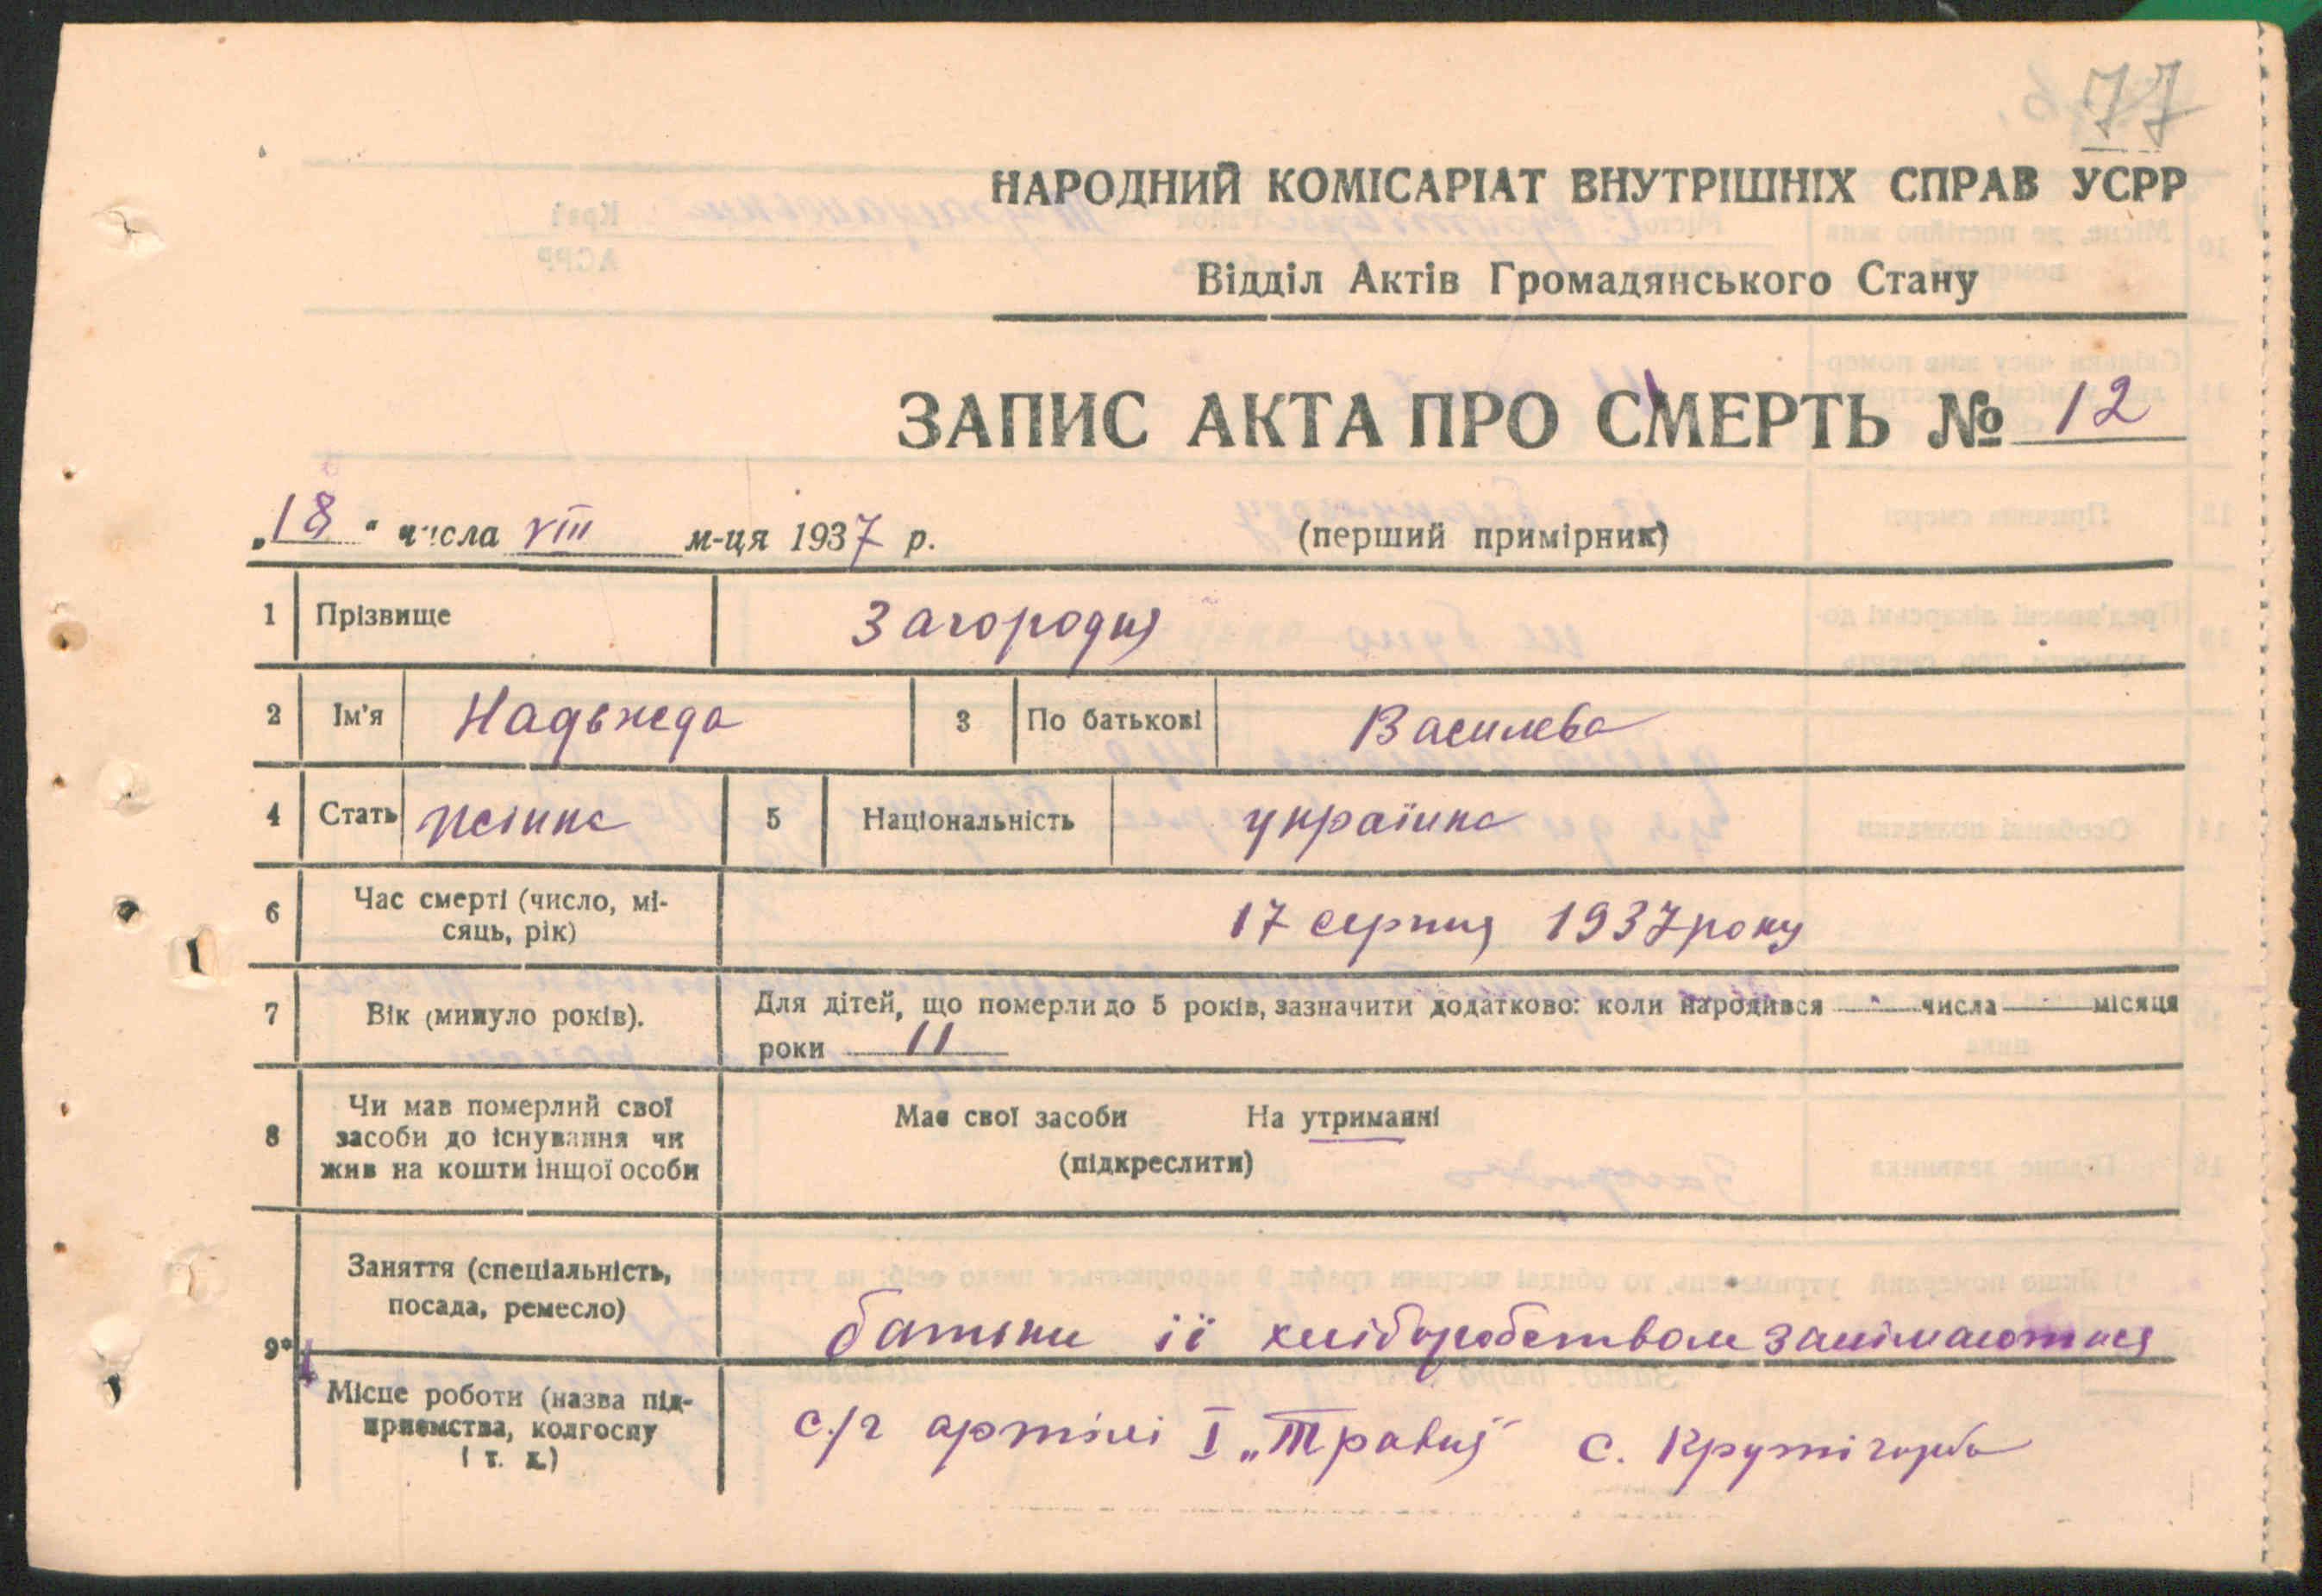 77
НАРОДНИЙ КОМІСАРІАТ ВНУТРІШНІХ СПРАВ УСРР
Відділ Актів Громадянського Стану
ЗАПИС АКТА ПРО СМЕРТЬ № 12
„18“ числа VIII м-ця 1937 р.
(перший примірник)
1 Прізвище Загородня
2 Ім'я Надьжеда 3 По батькові Василева
4 Стать жінка 5 Національність українка
6 Час смерті (число, мі-
сяць, рік) 17 серпня 1937 року
7 Вік (минуло років). Для дітей, що померли до 5 років, зазначити додатково: коли народився - числа - місяця
роки 11
8 Чи мав померлий свої
засоби до існування чи
жив на кошти іншої особи
Має свої засоби На утриманні
(підкреслити)
9*
Заняття (спеціальність,
посада, ремесло)
батьки її хліборобством занімаються
Місце роботи (назва під-
приємства, колгоспу
і т. д.)
с/г артілі I „Травня" с. Крутігорба